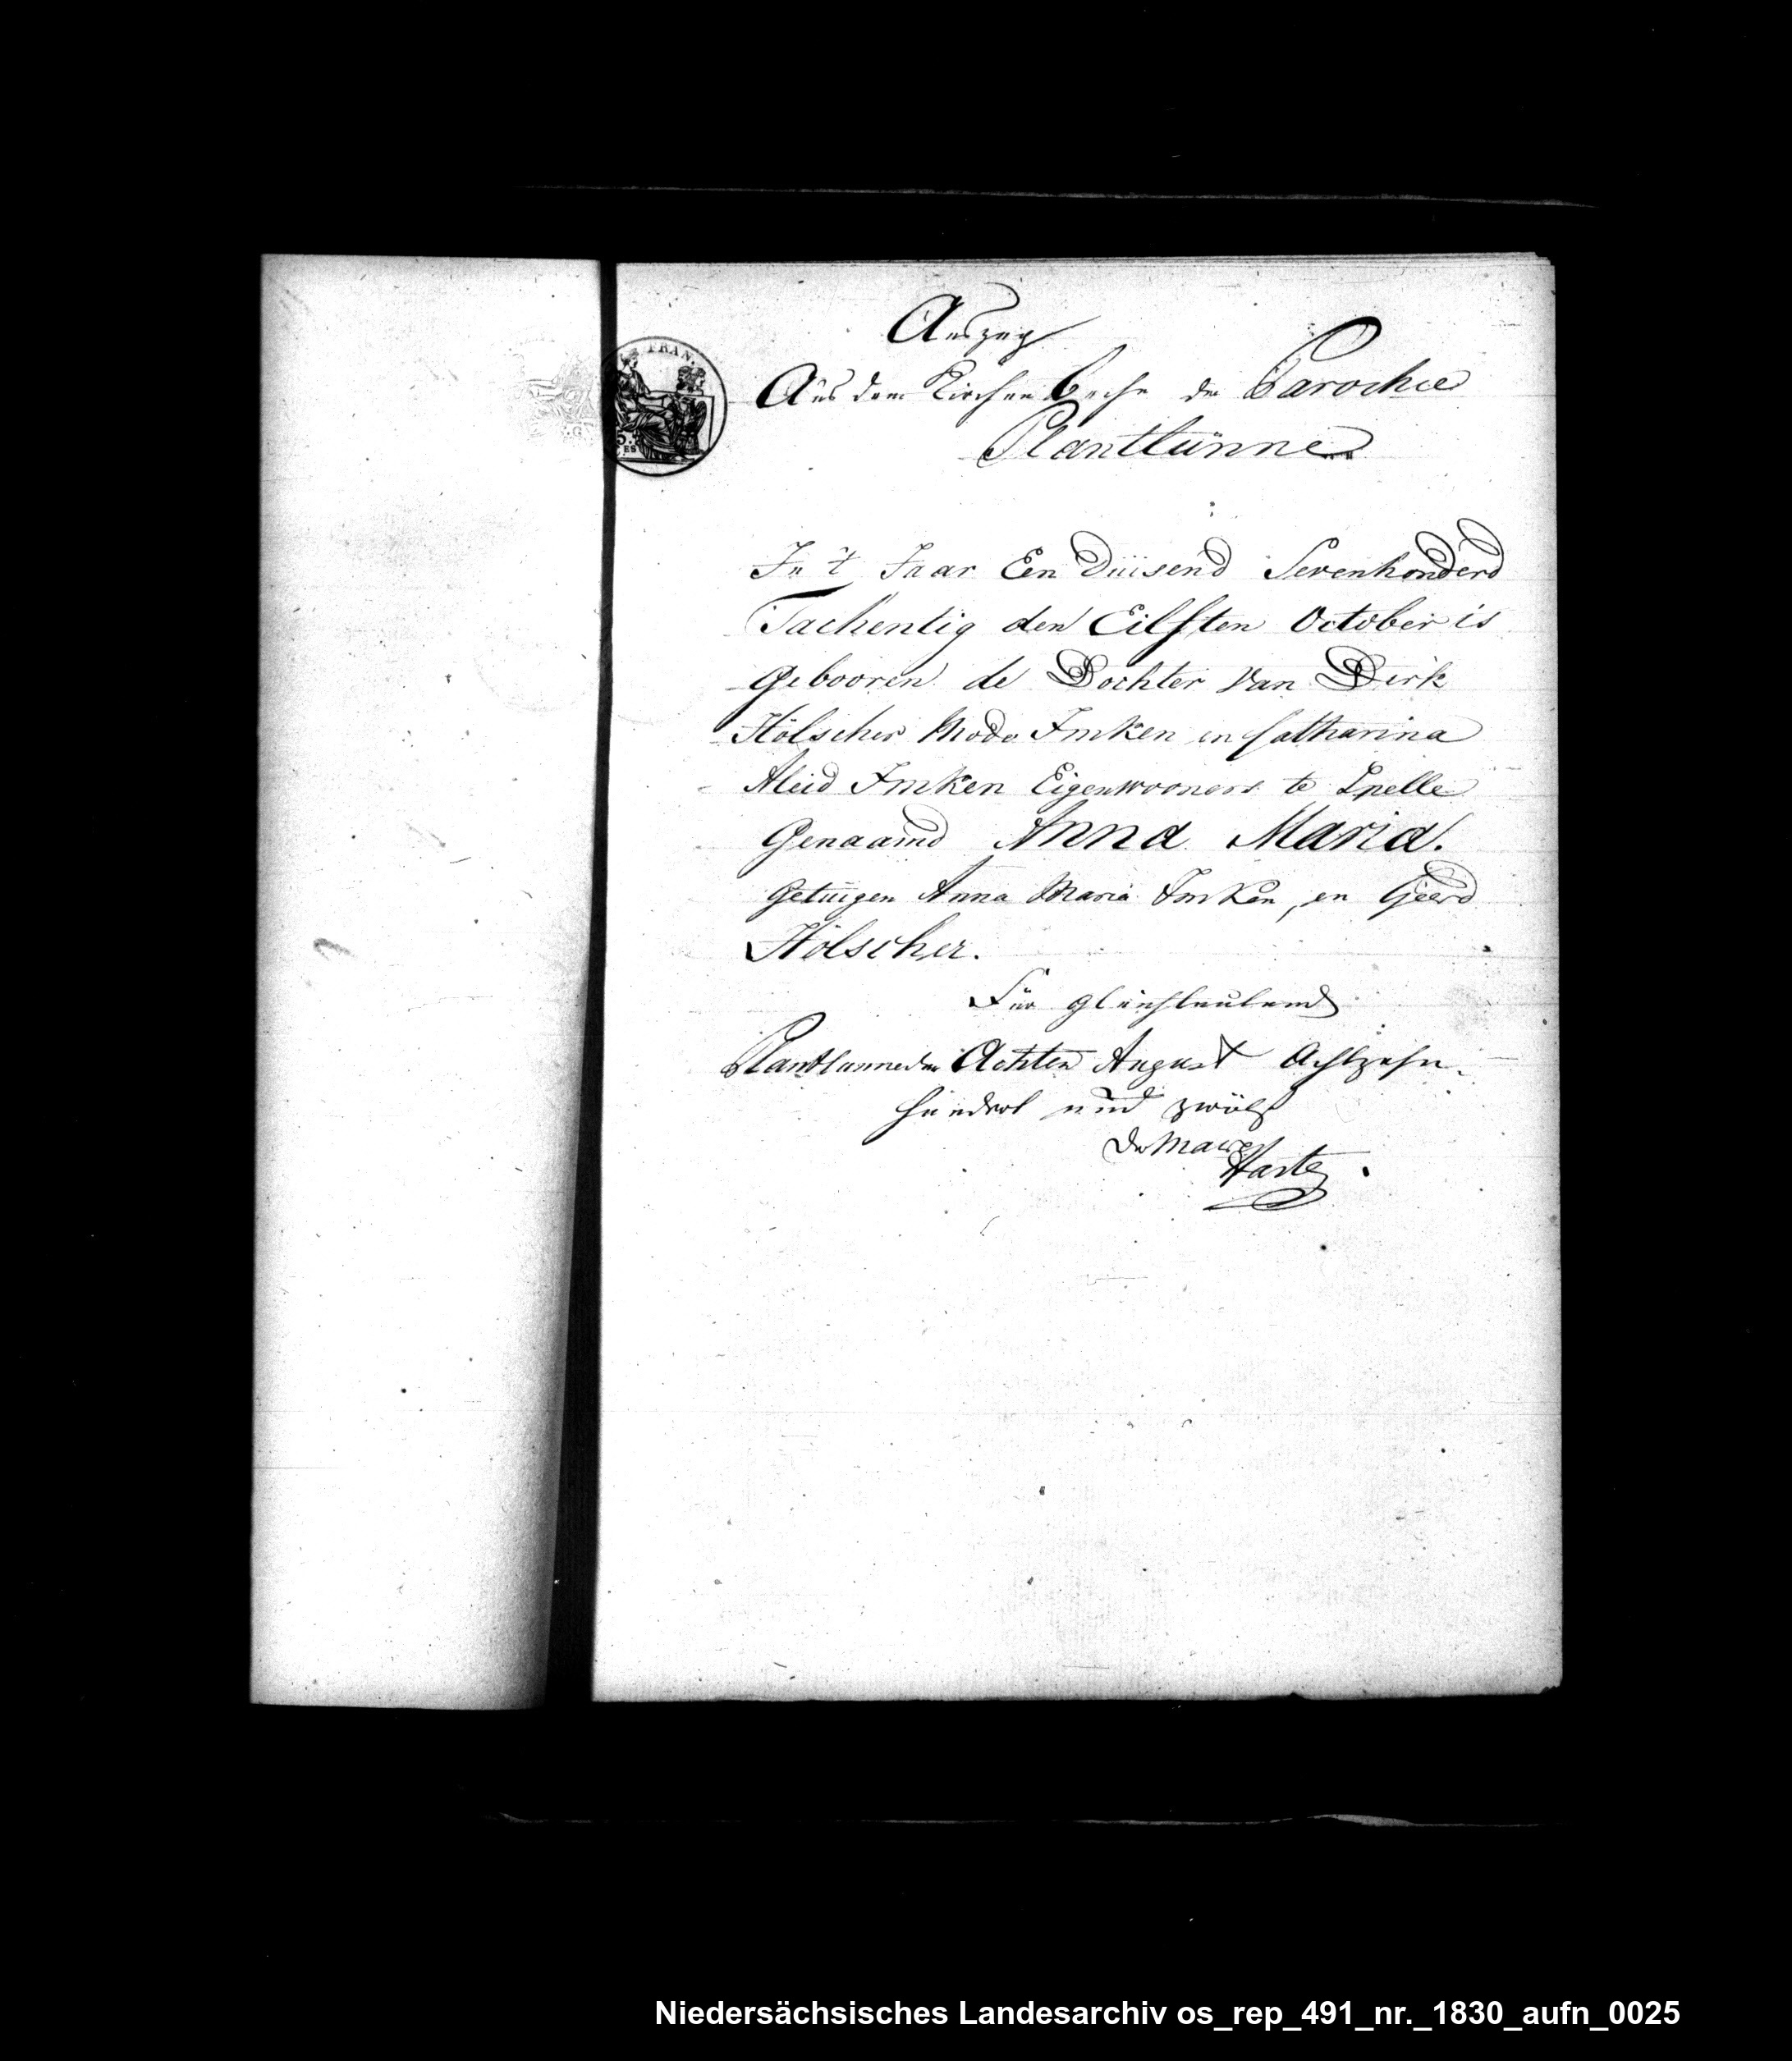 Auszug
Aus dem Kirchenbuche der Parochie
Plantlünne
FRAN.
In 't Jaar Een Duisend Sevenhonderd
Tachentig den Eilften October is
Gebooren de Dochter van Dirk
Hölscher Modo Imken en Catharina
Aleid Imken Eigenwooners te Spelle
Genaamd Anna Maria.
Getuigen Anna Maria Imken, en Geerd
Hölscher.
Für gleichlautend
Plantlunne den Achten August Achtzehn-
hundert und zwölf
Der Maire
Niedersächsisches Landesarchiv os_rep_491_nr._1830_aufn_0025